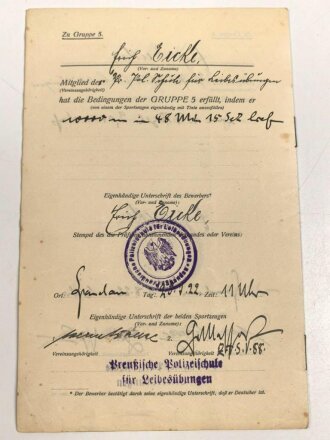 Zu Gruppe 5.
Erich Eicke,
(Vor- und Zuname)
Mitglied des* Pr. Pol. Schule für Leibesübungen
(Vereinszugehörigkeit)
hat die Bedingungen der GRUPPE 5 erfüllt, indem er
(von einem der Sportzeugen eigenhändig mit Tinte auszufüllen)
10000 m in 48 Min 15 Sek lief
Eigenhändige Unterschrift des Bewerbers*
(Vor- und Zuname):
Erich Eicke,
Stempel des die Prüfung
oder Vereins)
Ort: Spandau Tag: 22 Zeit: 11 Uhr
Eigenhändige Unterschrift der beiden Sportzeugen
(Vor- und Zuname):
2.
Vereinszugehörigkeit
Preußische Polizeischule
für Leibesübungen
* Der Bewerber bestätigt durch seine eigenhändige Unterschrift, daß er Deutscher ist.